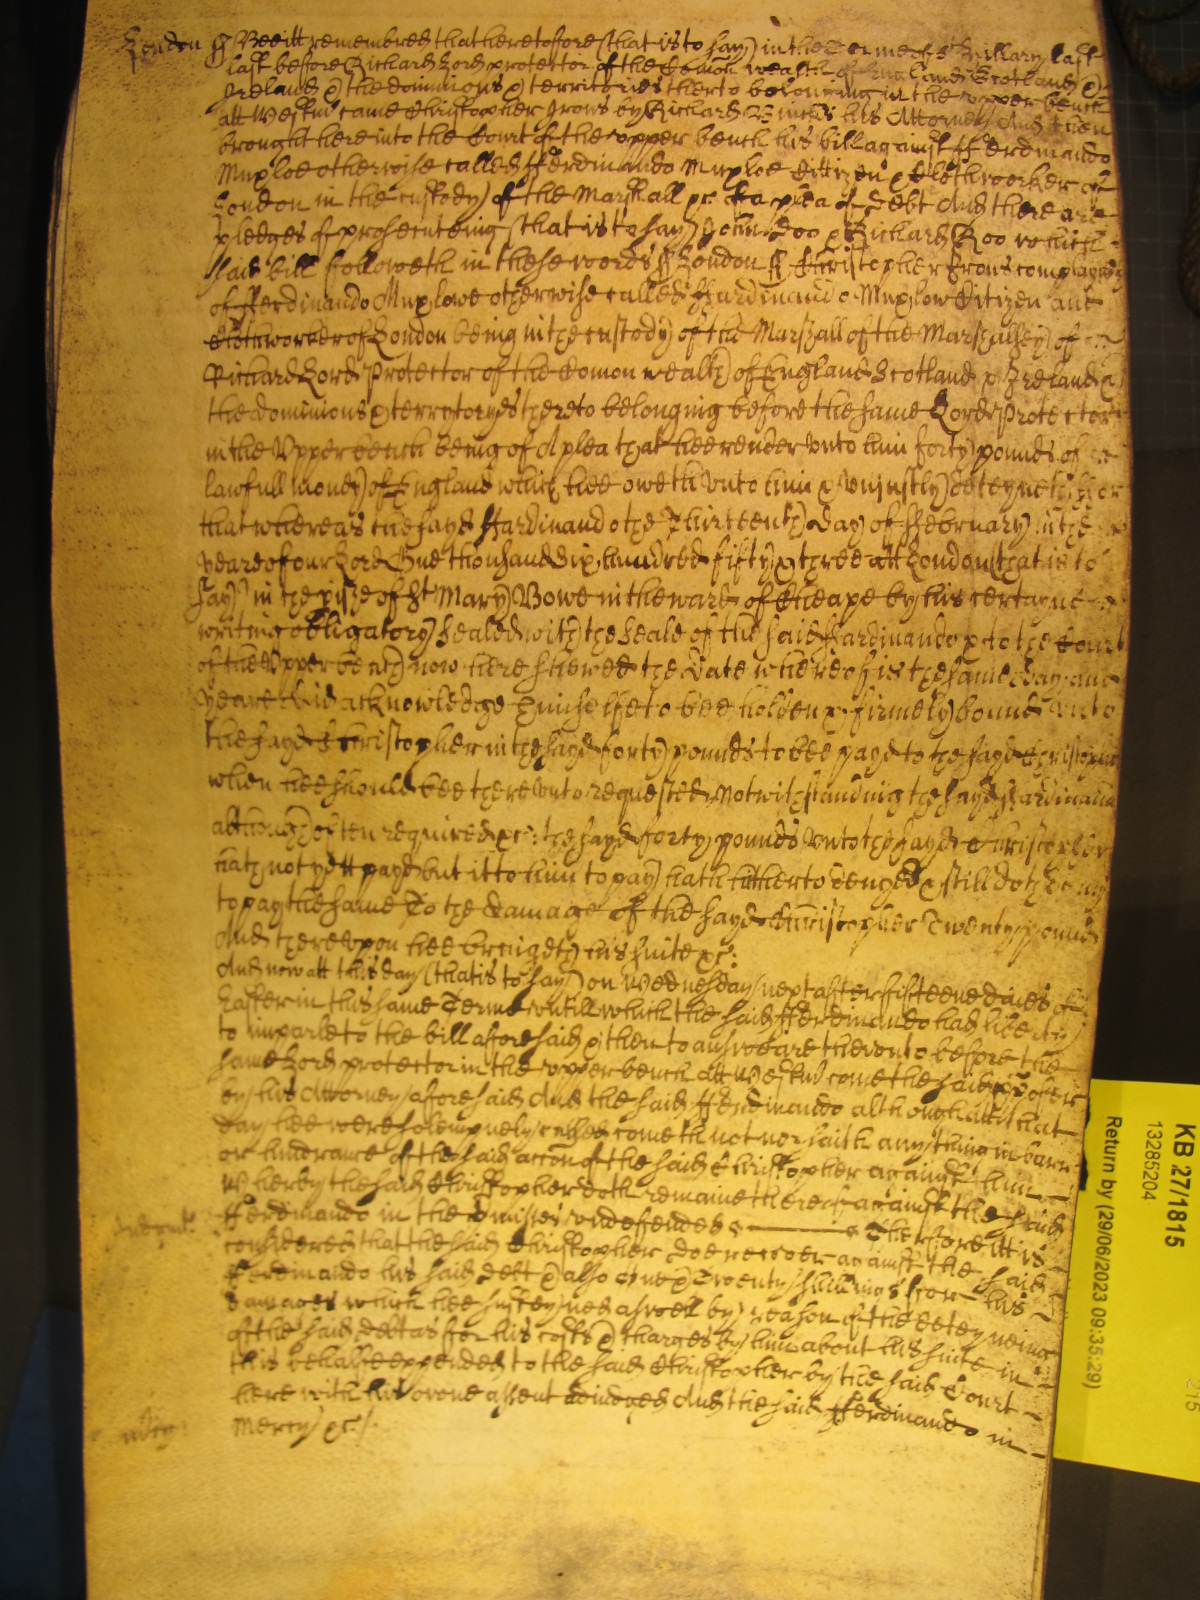 London ss Bee itt remembred that heretofore (that is to say) in the Terme of St Hillary last
last before Richard Lord protector of the Comon wealth of England Scotland &
Ireland & the dominions & territories therto belonging in the vpper bench
att Westmr came Christopher Frows by Richard his Attorney And then
brought here into the Court of the vpper bench his bill against Ferdinando
Muxloe otherwise called Fferdinando Muxloe Cittizen & Clothworker of
London in the custody of the Marshall &c of a plea of debt And there are
pledges of prosecuteing (that is to say) John Doo & Richard Roo which
said bill followeth in these words ss London ss Christopher Frows complayns
of Fferdinando Muxlowe otherwise called Ffardinando Muxlow Citizen and
Clothworker of London being in the custody of the Marshall of the Marshalsey of
Richard Lord Protector of the Comon wealth of England Scotland & Ireland &
the dominions & terrytoryes thereto belonging before the same Lord Protector
in the Vpper bench being of A plea that hee render vnto him forty pounds of
lawfull money of England which hee oweth vnto him & vniustly deteyneth for
that whereas the sayd Ffardinando the Thirteenth day of Ffebruary in the
yeare of our Lord One thousand Six hundred fifty & three att London (that is to
say) in the pishe of St Mary Bowe in the ward of Cheape by his certayne
writing obligatory sealed with the seale of the said Ffardinando & to the Court
of the Vpper bench now here shewed the date whereof is the same day and
yeare did acknowledge himselfe to bee holden & firmely bound vnto
the sayd Christopher in the sayd forty pounds to bee payd to the sayd Christopher
when hee should bee there vnto requested Notwithstanding the sayd Ffardinando
although often required &c: the sayd forty pounds vnto the sayd Christopher
hath not yett payd but it to him to pay hath hitherto denyed & still doth deny
to pay the same To the damage of the sayd Christopher Twenty pounds
And there vpon hee bringeth his suite &c:
And now att this day (that is to say) on Wednesday next after fifteene daies of
Easter in this same Terme vntill which the said Fferdinando had liberty
to imparle to the bill aforesaid & then to answeare therevnto before the
same Lord protector in the vpper bench att Westmr come the said
by his Attorney aforesaid And the said Fferdinando although att that
day hee were solempnely called cometh not nor saith any thing in barr
or hinderance of the said accon of the said Christopher against him
Wherby the said Christopher doth remaine thereof against the said
Fferdinando in the vndefended Therfore itt is
considered that the said Christopher doe recover against the said
Fferdinando his said debt & also & Twenty shillings for his
damages which hee susteyned aswell by reason of the deteyneing
of the said debt as for his costs & charges by him about his suite in
this behalfe expended to the said Christopher by the said Court
here with his owne assent adiudged And the said Fferdinando in
Mercy &c/
KB 27/1815
13285204
Return by (29/06/2023 09:35:29)